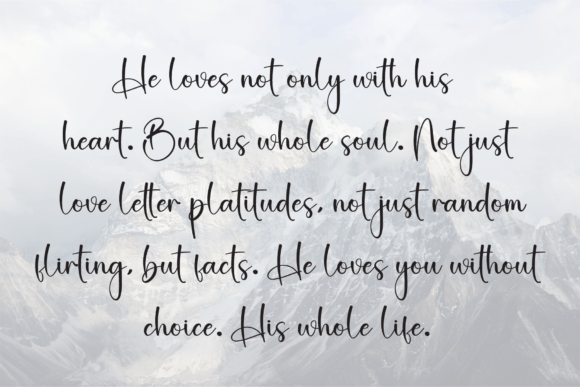 He loves not only with his
heart. But his whole soul. Not just
love letter platitudes, not just random
flirting, but facts. He loves you without
choice. His whole life.